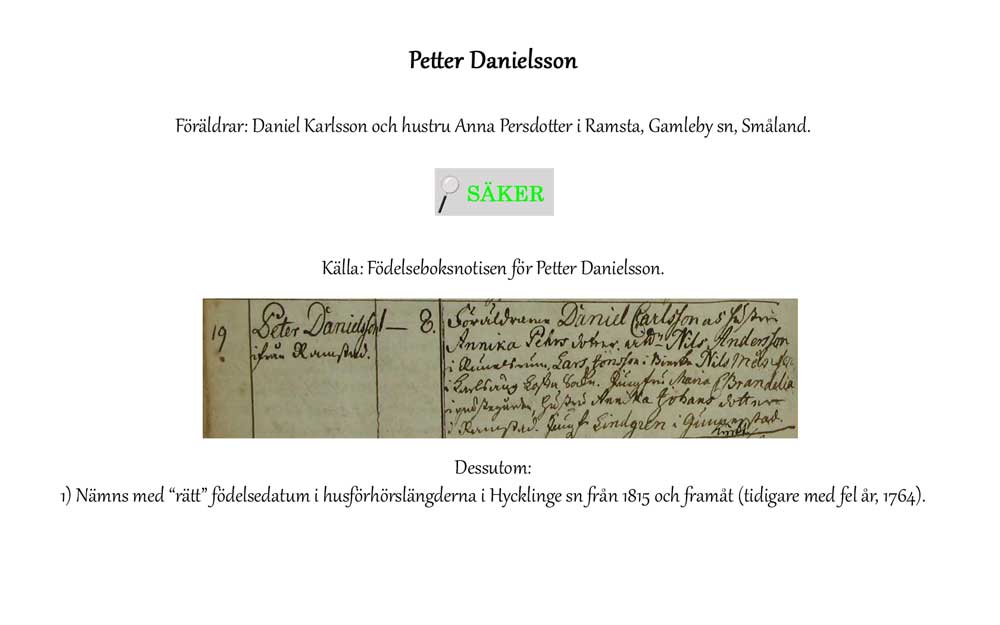 Petter Danielsson
Föräldrar: Daniel Karlsson och hustru Anna Persdotter i Ramsta, Gamleby sn, Småland.
SÄKER
Källa: Födelseboksnotisen för Petter Danielsson.
19 Peter Danielsson 1 — 8. Föräldrarne Daniel Carlsson och hustru
ifrån Ramstad. Annika Pehrs dotter. Nils Andersson
i Lars Jönsson i Nils
i Jungfru Maria Brandelia
i hustru Annika Johans dotter
i Ramstad. Jungf. Lindgren i
Dessutom:
1) Nämns med “rätt” födelsedatum i husförhörslängderna i Hycklinge sn från 1815 och framåt (tidigare med fel år, 1764).